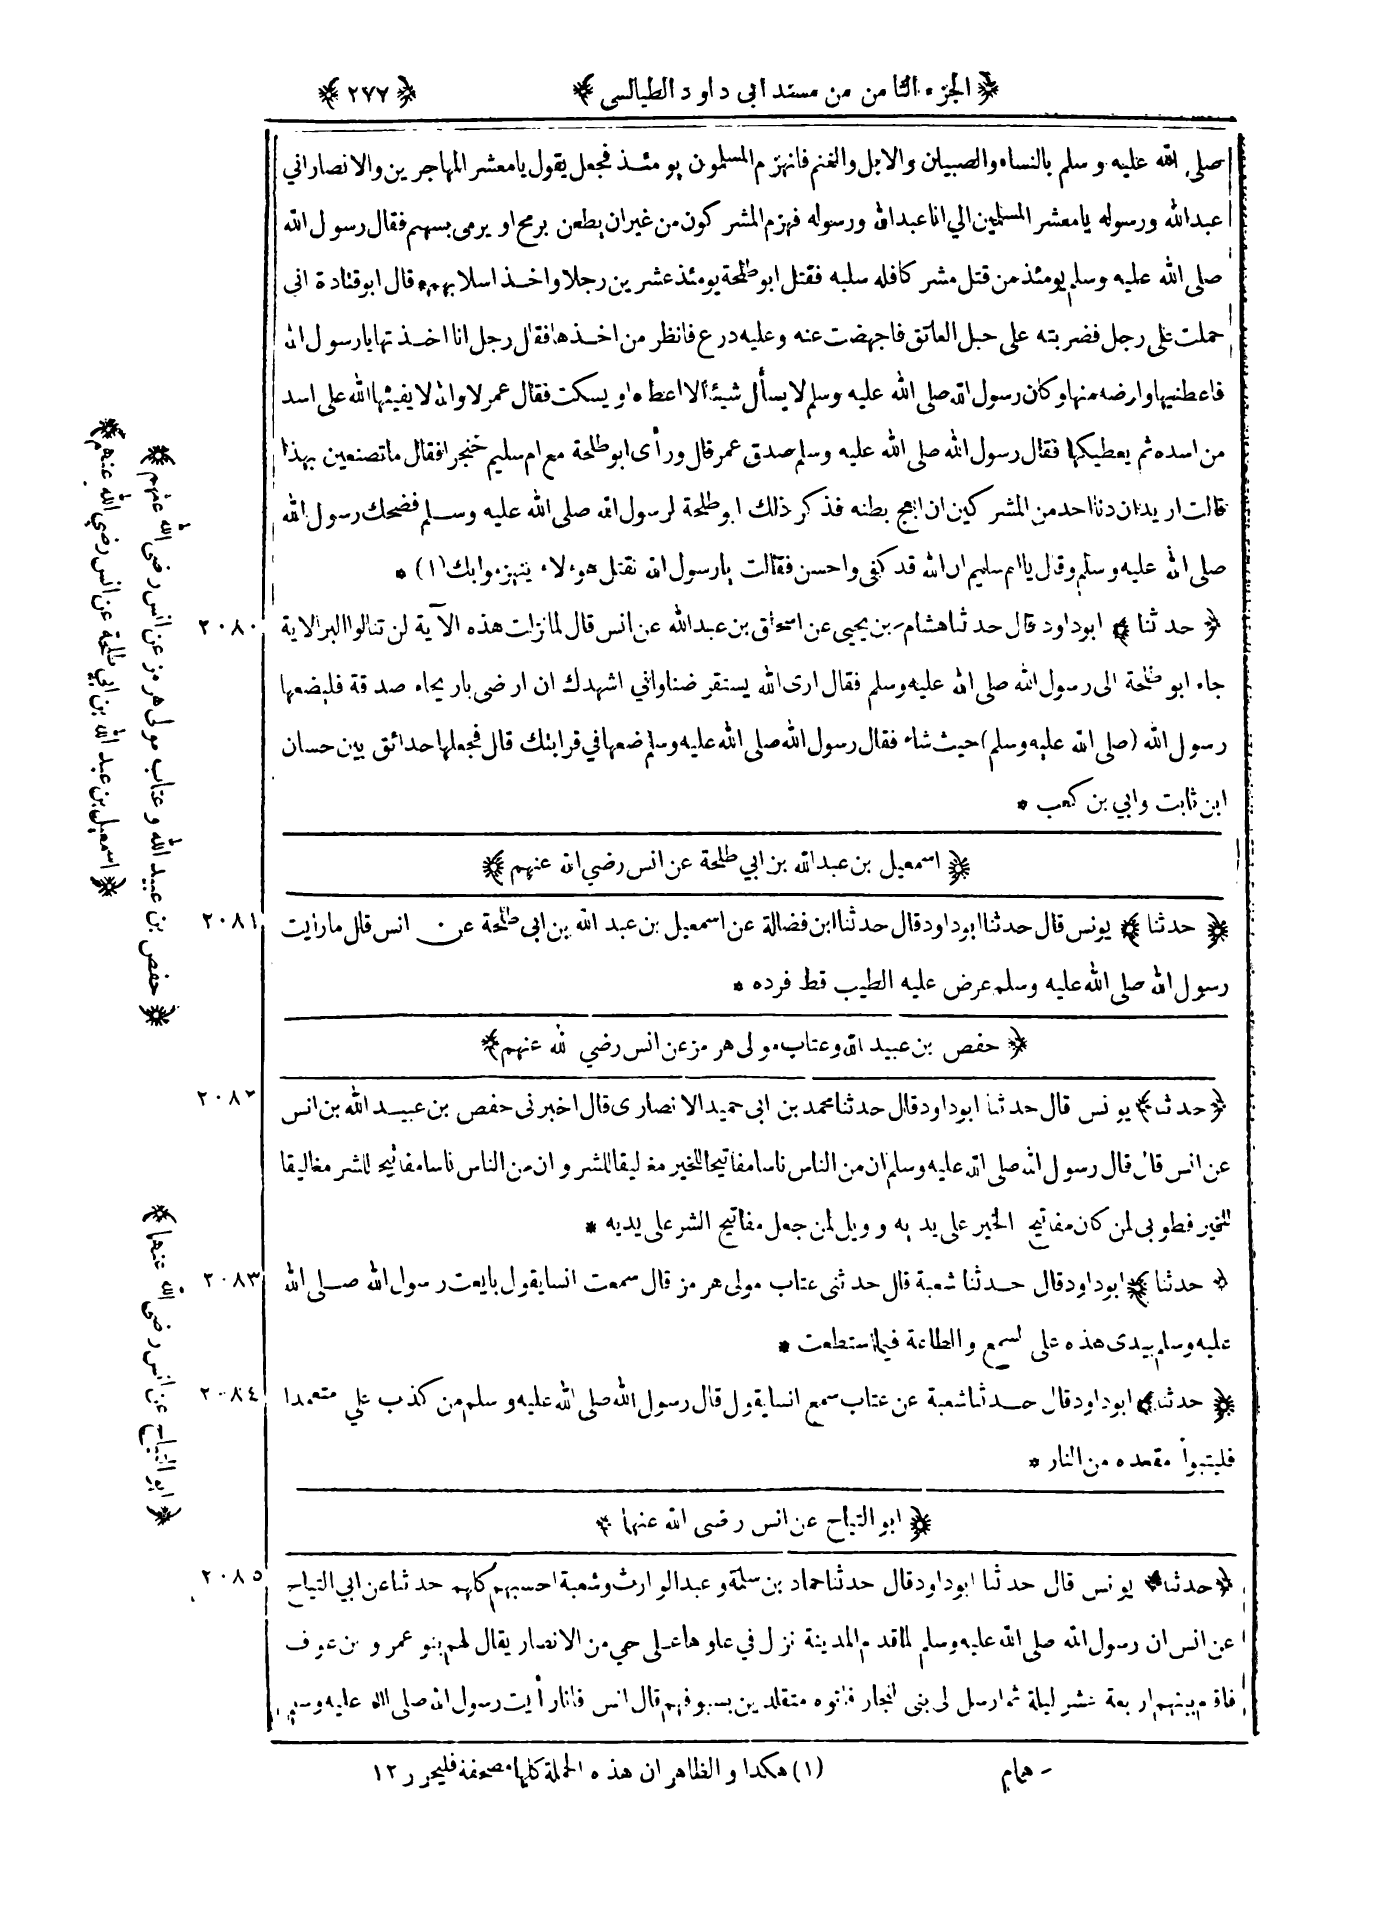 ﴿ الجزء الثامن من مسند ابى داود الطيالسى ﴾ ﴿ ٢٧٧ ﴾
صلى الله عليه وسلم بالنساء والصبيان والابل والغنم فانهزم المسلمون يومئذ فجعل يقول يامعشر المهاجرين والانصار اني
عبدالله ورسوله يامعشر المسلمين الي انا عبدالله ورسوله فهزم المشركون من غير ان يطعن برمح او يرمى بسهم فقال رسول الله
صلى الله عليه وسلم يومئذ من قتل مشركا فله سلبه فقتل ابو طلحة يومئذ عشرين رجلا واخذ اسلابهم * قال ابو قتادة انى
حملت على رجل فضربته على حبل العاتق فاجهضت عنه وعليه درع فانظر من اخذها فقال رجل انا اخذتها يارسول الله
فاعطنيها وارضه منها وكان رسول الله صلى الله عليه وسلم لا يسأل شيئا الا اعطاه او يسكت فقال عمر لا والله لا يفيئها الله على اسد
من اسده ثم يعطيكها فقال رسول الله صلى الله عليه وسلم صدق عمر قال ورأى ابو طلحة مع ام سليم خنجرا فقال ما تصنعين بهذا
قالت اريد ان دنا احد من المشركين ان ابعج بطنه فذكر ذلك ابو طلحة لرسول الله صلى الله عليه وسلم فضحك رسول الله
صلى الله عليه وسلم وقال ياام سليم ان الله قد كفى واحسن فقالت يارسول الله نقتل هوءلاء ينهزموا بك (١) *
٢٠٨٠ ﴿ حدثنا ﴾ ابوداود قال حدثنا هشام - بن يحيى عن اسحاق بن عبدالله عن انس قال لما نزلت هذه الآية لن تنالوا البر الاية
جاء ابو طلحة الى رسول الله صلى الله عليه وسلم فقال ارى الله يستقرضنا واني اشهدك ان ارضى باريحاء صدقة فليضعها
رسول الله (صلى الله عليه وسلم) حيث شاء فقال رسول الله صلى الله عليه وسلم ضعها في قرابتك قال فجعلها حدائق بين حسان
ابن ثابت وابي بن كعب *
﴿ اسمعيل بن عبدالله بن ابي طلحة عن انس رضي الله عنهم ﴾
٢٠٨١ ﴿ حدثنا ﴾ يونس قال حدثنا ابوداود قال حدثنا ابن فضالة عن اسمعيل بن عبد الله بن ابى طلحة عن انس قال ما رأيت
رسول الله صلى الله عليه وسلم عرض عليه الطيب قط فرده *
﴿ حفص بن عبيد الله وعتاب مولى هرمز عن انس رضي الله عنهم ﴾
٢٠٨٢ ﴿ حدثنا ﴾ يونس قال حدثنا ابوداود قال حدثنا محمد بن ابى حميد الانصارى قال اخبرنى حفص بن عبيد الله بن انس
عن انس قال قال رسول الله صلى الله عليه وسلم ان من الناس ناسا مفاتيحا للخير مغاليقا للشر وان من الناس ناسا مفاتيحا للشر مغاليقا
للخير فطوبى لمن كان مفاتيح الخير على يديه وويل لمن جعل مفاتيح الشر على يديه *
٢٠٨٣ ﴿ حدثنا ﴾ ابوداود قال حدثنا شعبة قال حدثنى عتاب مولى هرمز قال سمعت انسا يقول بايعت رسول الله صلى الله
عليه وسلم بيدى هذه على السمع والطاعة فيما استطعت *
٢٠٨٤ ﴿ حدثنا ﴾ ابوداود قال حدثنا شعبة عن عتاب سمع انسا يقول قال رسول الله صلى الله عليه وسلم من كذب علي متعمدا
فليتبوأ مقعده من النار *
﴿ ابو التياح عن انس رضى الله عنهما ﴾
٢٠٨٥ ﴿ حدثنا ﴾ يونس قال حدثنا ابوداود قال حدثنا حماد بن سلمة وعبدالوارث وشعبة احسبهم كلهم حدثنا عن ابي التياح
عن انس ان رسول الله صلى الله عليه وسلم لما قدم المدينة نزل في علوها على حي من الانصار يقال لهم بنو عمرو بن عوف
فاقام بينهم اربعة عشر ليلة ثم ارسل لى بنى النجار فاتوه متقلدين بسيوفهم قال انس فانا رأيت رسول الله صلى الله عليه وسلم
- همام
(١) هكذا والظاهر ان هذه الجملة كلها مصحفة فليحرر ١٢
﴿ اسمعيل بن عبد الله بن ابي طلحة عن انس رضي الله عنهم ﴾
﴿ حفص بن عبيد الله وعتاب مولى هرمز عن انس رضى الله عنهم ﴾
﴿ ابو التياح عن انس رضى الله عنهما ﴾